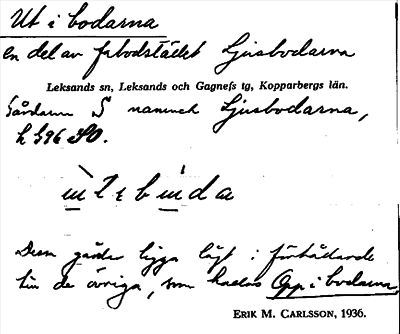 Ut i bodarna
en del av fäbodstället Ljusbodarna
Leksands sn, Leksands och Gagnefs tg, Kopparbergs län.
Gårdarna S namnet Ljusbodarna,
k 596 SO.
Dessa gårdar ligga lågt i förhållande
till de övriga, som kallas Opp i bodarna.
ERIK M. CARLSSON, 1936.